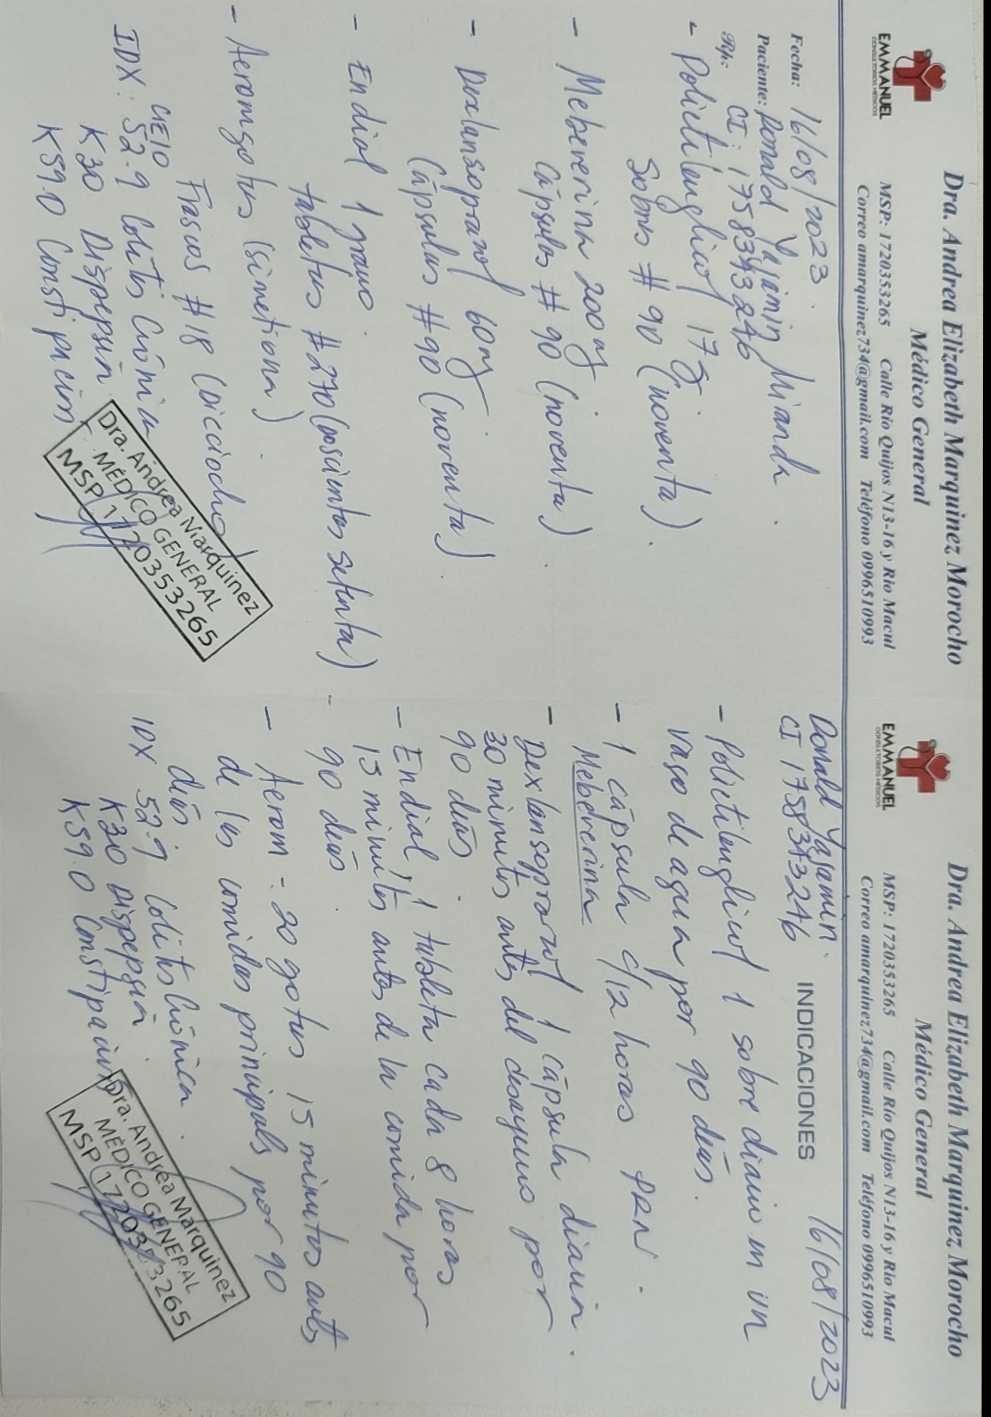 EMMANUEL
CONSULTORIOS MÉDICOS
Dra. Andrea Elizabeth Marquinez Morocho
Médico General
MSP: 1720353265 Calle Río Quijos N13-16 y Río Macul
Correo amarquinez734@gmail.com Teléfono 0996510993
Fecha: 16/08/2023.
Paciente: Donald Yajamin Miranda.
CI: 1758343246
Rp:
- Polietilenglicol 17g
Sobres # 90 (noventa).
- Mebeverina 200mg
Cápsulas # 90 (noventa)
- Dexlansoprazol 60mg
Cápsulas #90 (noventa).
- Endial 1 gramo.
tabletas #270 (doscientos setenta)
- Aerom gotas (simeticona)
Frascos #18 (dieciocho)
CIE10
IDX: 52.9 Colitis Crónica
K30 Dispepsia
K59.0 Constipación
Dra. Andrea Marquinez
MÉDICO GENERAL
MSP 1720353265
EMMANUEL
CONSULTORIOS MÉDICOS
Dra. Andrea Elizabeth Marquinez Morocho
Médico General
MSP: 1720353265 Calle Río Quijos N13-16 y Río Macul
Correo amarquinez734@gmail.com Teléfono 0996510993
Donald Yajamin. INDICACIONES 16/08/2023
CI
- Polietilenglicol 1 sobre diario en un
vaso de agua por 90 días.
- 1 cápsula c/12 horas PRN.
Mebeverina
- Dexlansoprazol 1 cápsula diaria.
30 minutos antes del desayuno por
90 días.
- Endial 1 tableta cada 8 horas
15 minutos antes de la comida por
90 días.
- Aerom - 20 gotas 15 minutos antes
de las comidas principales por 90
días
IDX 52.9 Colitis Crónica.
K30 Dispepsia.
K59.0 Constipación
Dra. Andrea Marquinez
MÉDICO GENERAL
MSP 1720353265